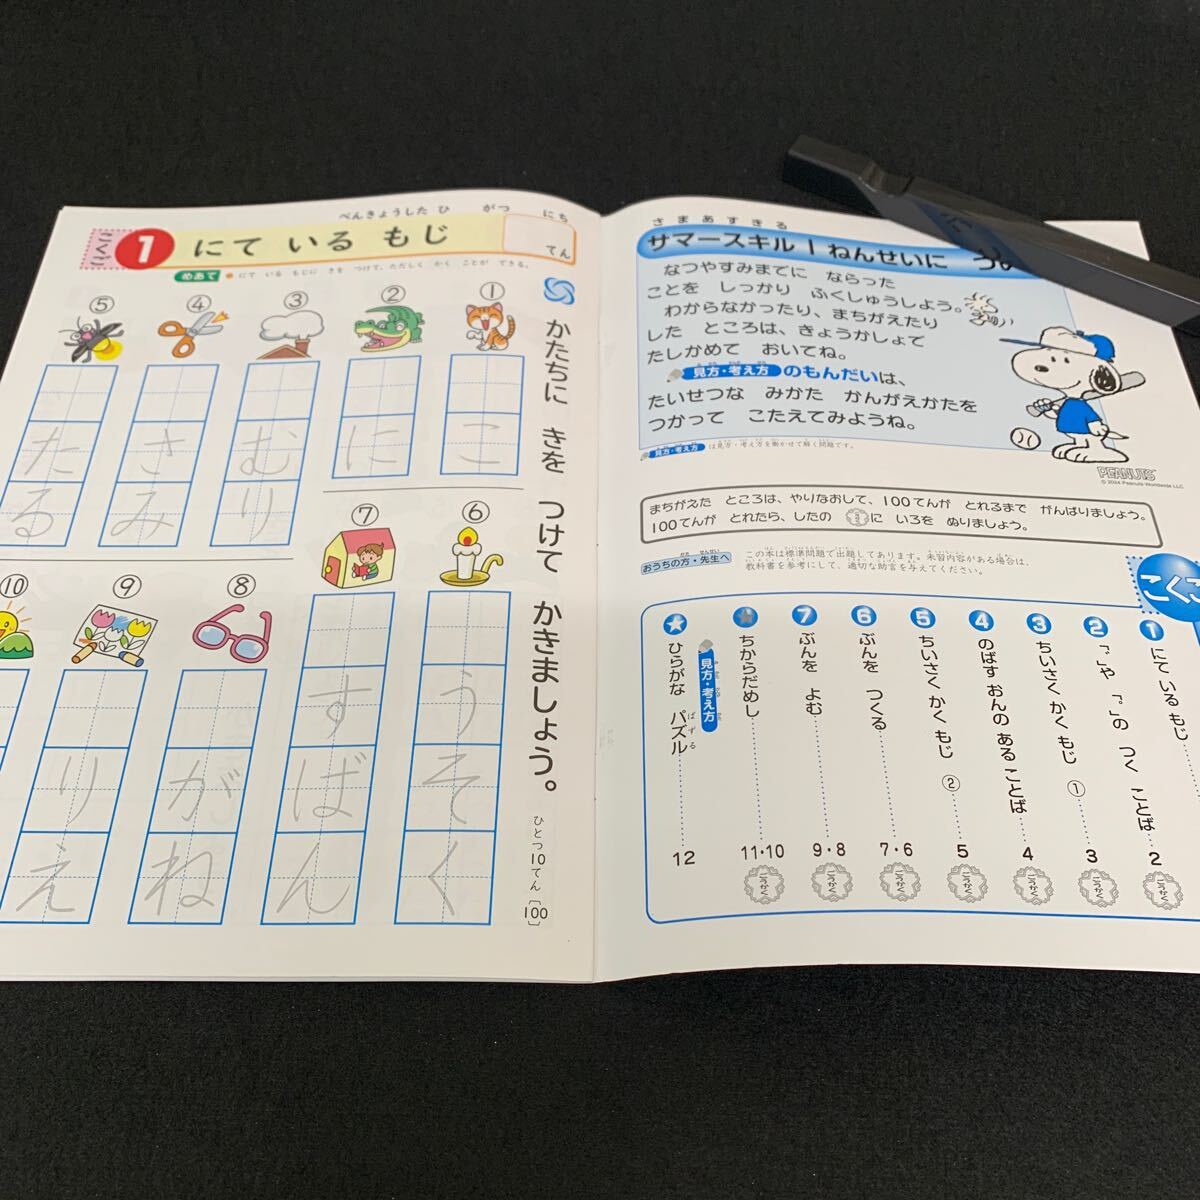 べんきょうした ひ がつ にち
こくご
1
にて いる もじ
てん
めあて
●にて いる もじに きを つけて、ただしく かく ことが できる。
かたちに きを つけて かきましょう。
ひとつ10てん 〔100〕
①
こ
②
に
③
むり
④
さみ
⑤
たる
⑥
うそく
⑦
すばん
⑧
がね
⑨
りえ
⑩
さまあすきる
サマースキル1ねんせいに
なつやすみまでに ならった
ことを しっかり ふくしゅうしよう。
わからなかったり、まちがえたり
した ところは、きょうかしょで
たしかめて おいてね。
見方・考え方 のもんだいは、
たいせつな みかた かんがえかたを
つかって こたえてみようね。
見方・考え方 は見方・考え方を働かせて解く問題です。
PEANUTS
© 2024 Peanuts Worldwide LLC
まちがえた ところは、やりなおして、100てんが とれるまで がんばりましょう。
100てんが とれたら、したの に いろを ぬりましょう。
おうちの方・先生へ
この本は標準問題で出題してあります。未習内容がある場合は、
教科書を参考にして、適切な助言を与えてください。
こくご
1 にて いる もじ 2
2 「゛」や「゜」の つく ことば 3
3 ちいさく かく もじ ① 4
4 のばす おんの ある ことば 5
5 ちいさく かく もじ ②
6 ぶんを つくる 7・6
7 ぶんを よむ 9・8
★ ちからだめし 11・10
見方・考え方
★ ひらがな パズル 12
ぱずる
ごうかく
ごうかく
ごうかく
ごうかく
ごうかく
ごうかく
ごうかく